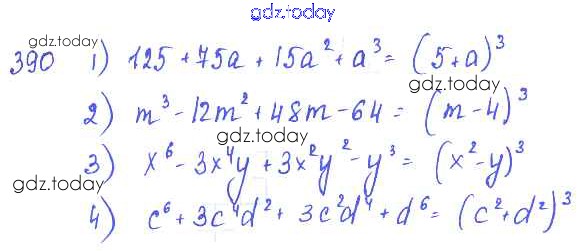 gdz.today
gdz.today
390 1) 125 + 75a + 15a² + a³ = (5+a)³
gdz.today
2) m³ - 12m² + 48m - 64 = (m-4)³
gdz.today
3) x⁶ - 3x⁴y + 3x²y² - y³ = (x²-y)³
gdz.today
4) c⁶ + 3c⁴d² + 3c²d⁴ + d⁶ = (c²+d²)³
gdz.today